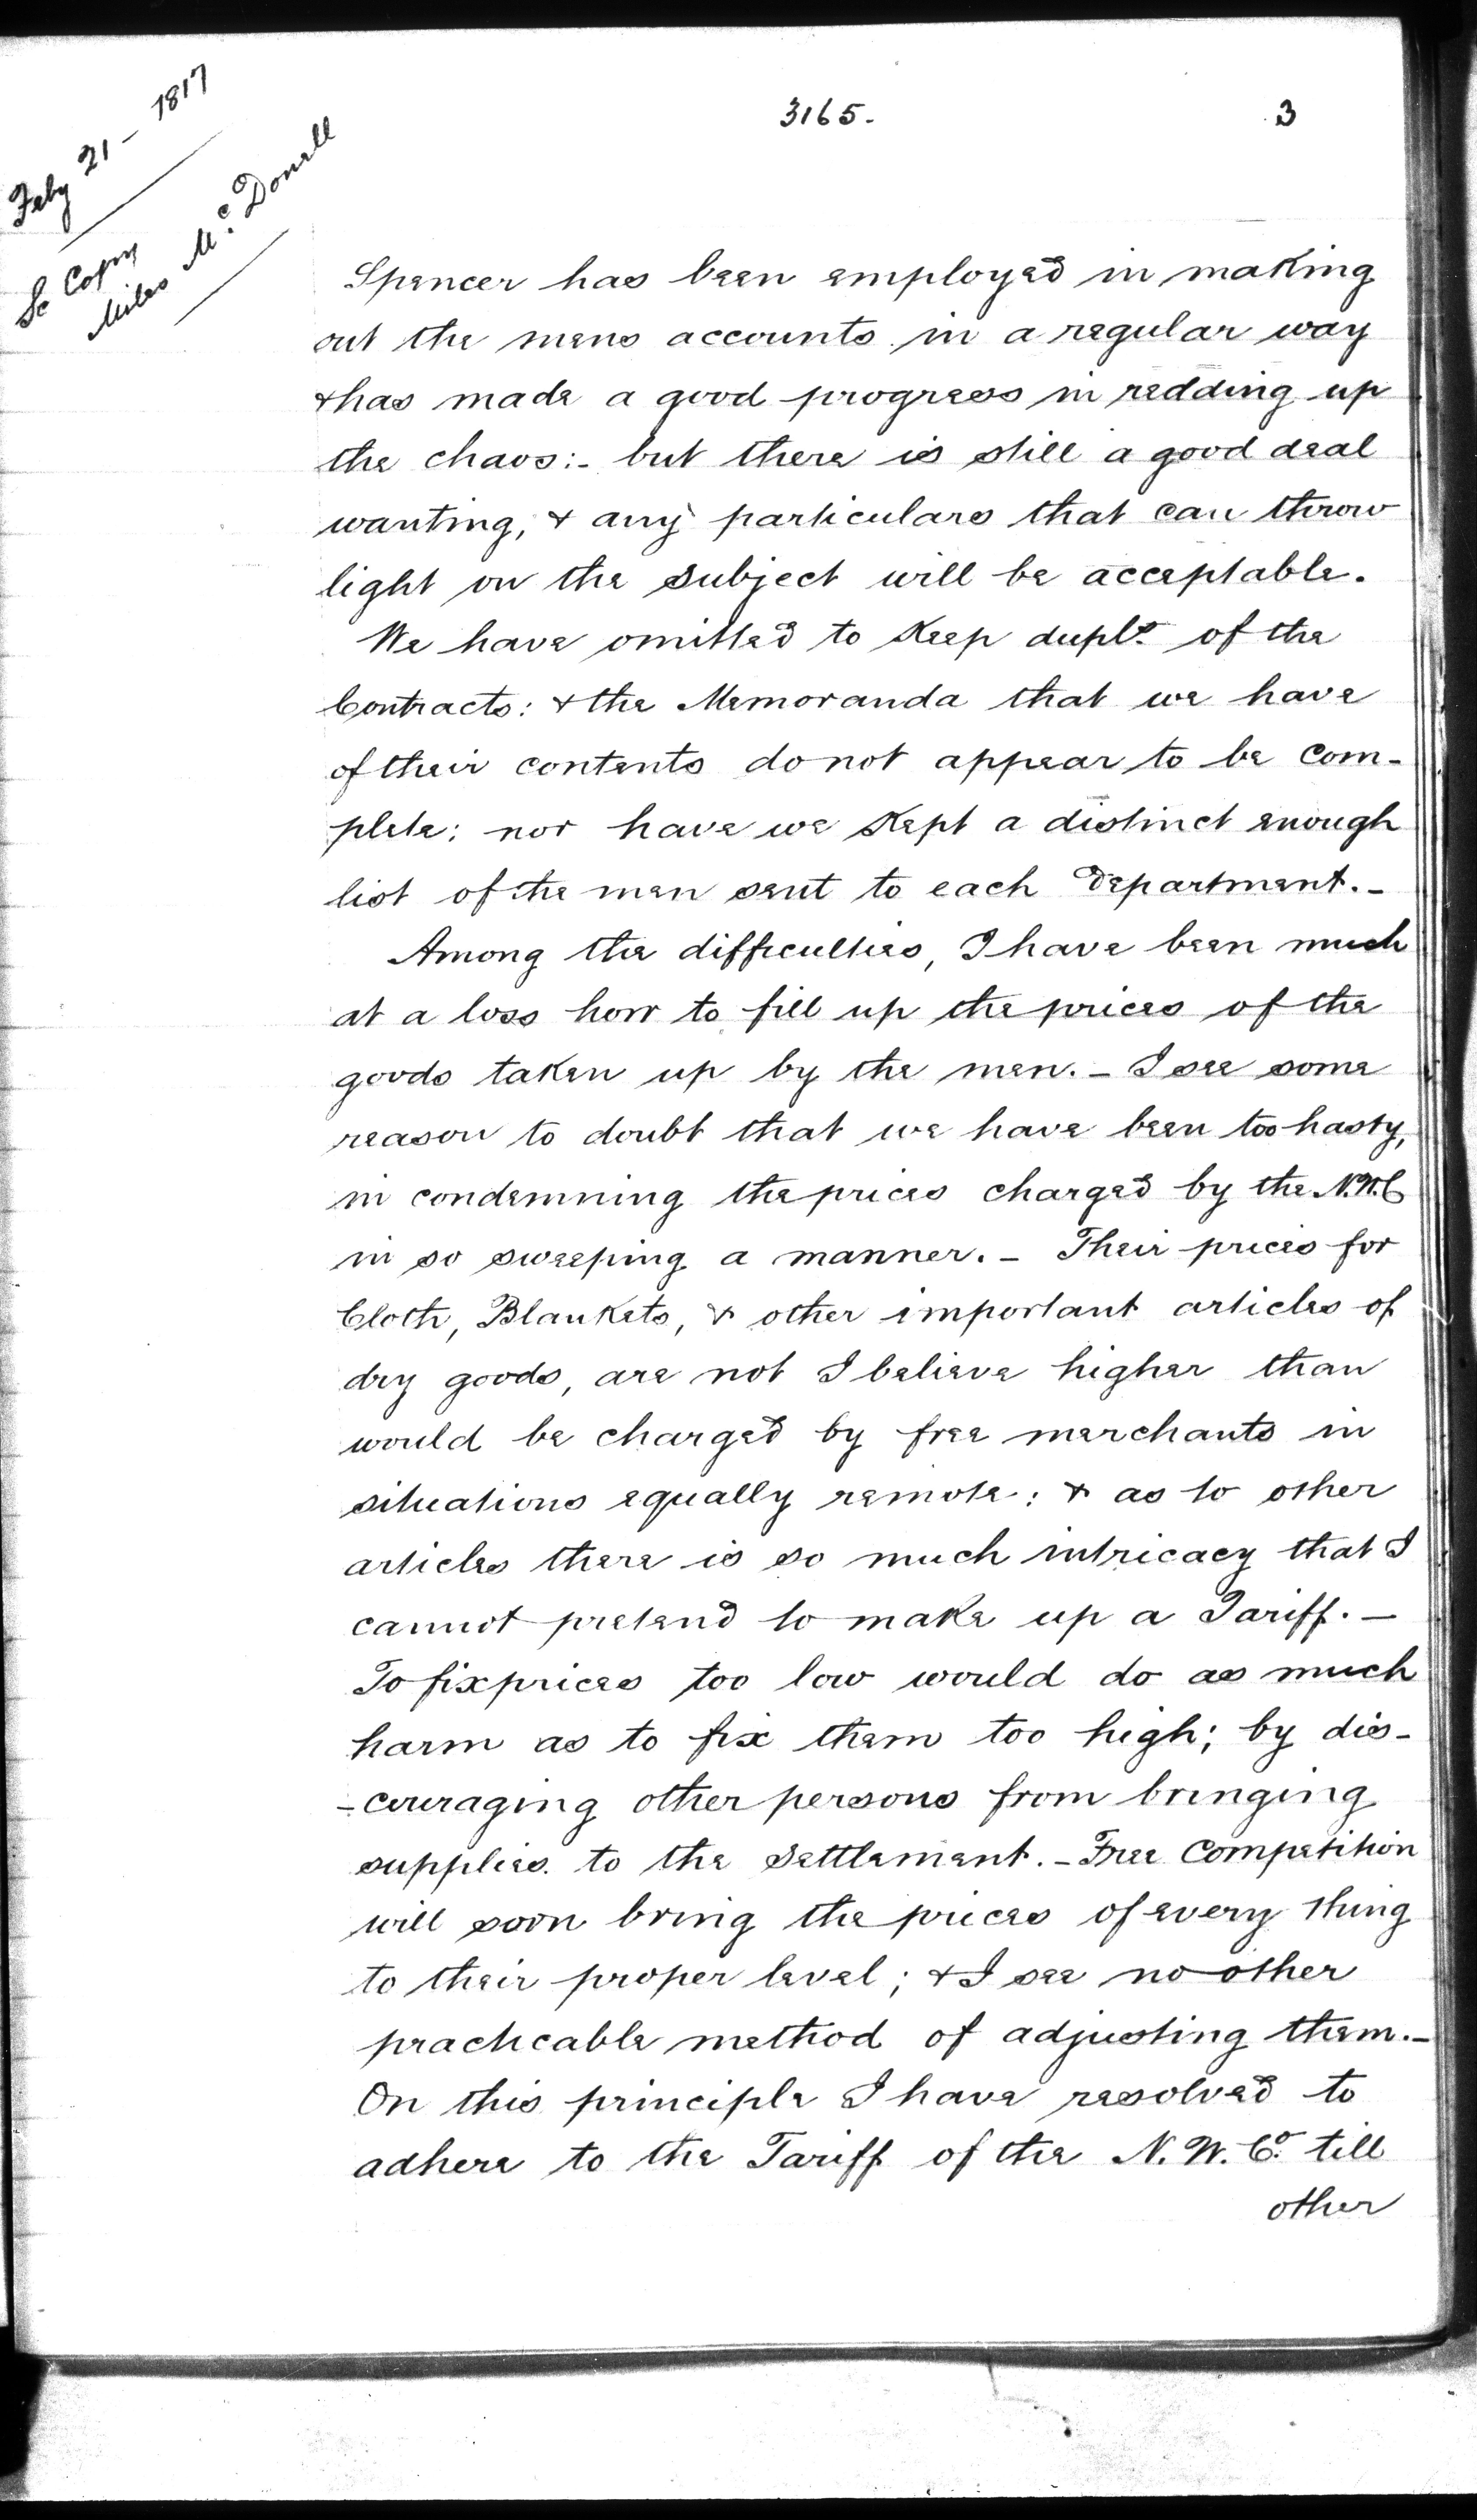 Feby 21 - 1817
Sc Copy
Miles McDonell
3165.
3
Spencer has been employed in making
out the mens accounts in a regular way
& has made a good progress in redding up
the chaos:- but there is still a good deal
wanting, & any particulars that can throw
light on the subject will be acceptable.
We have omitted to Keep duplts of the
Contracts: & the Memoranda that we have
of their contents do not appear to be com-
plete; nor have we Kept a distinct enough
list of the men sent to each Department.-
Among the difficulties, I have been much
at a loss how to fill up the prices of the
goods taken up by the men. - I see some
reason to doubt that we have been too hasty,
in condemning the prices charged by the N.W.C
in so sweeping a manner. - Their prices for
Cloth, Blankets, & other important articles of
dry goods, are not I believe higher than
would be charged by free merchants in
situations equally remote: & as to other
articles there is so much intricacy that I
cannot pretend to make up a Tariff. -
To fix prices too low would do as much
harm as to fix them too high; by dis-
-couraging other persons from bringing
supplies to the Settlement. - Free Competition
will soon bring the prices of every thing
to their proper level; & I see no other
practicable method of adjusting them.-
On this principle I have resolved to
adhere to the Tariff of the N. W. Co. till
other